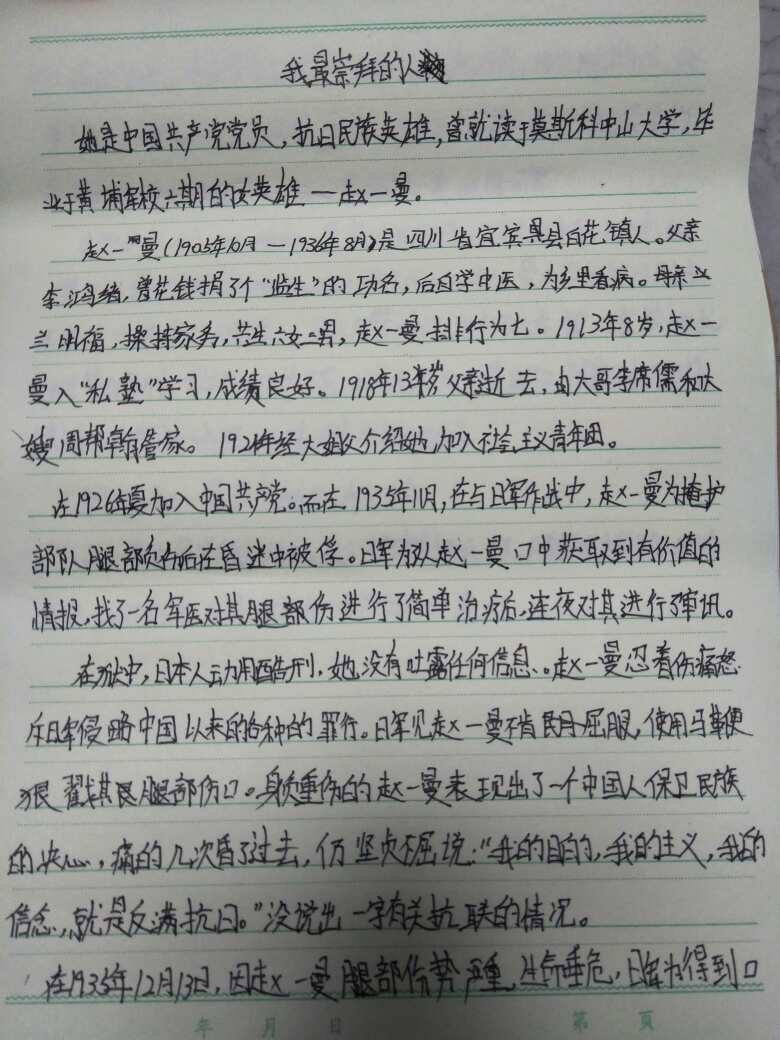 我最崇拜的人
她是中国共产党党员,抗日民族英雄,曾就读于莫斯科中山大学,毕
业于黄埔军校六期的女英雄一赵一曼。
赵一曼(1905年10月一1936年8月)是四川省宜宾县白花镇人。父亲
李鸿绪,曾花钱捐了个“监生”的功名,后自学中医,为乡里看病。母亲
兰明福,操持家务,共生六女二男,赵一曼排行为七。1913年8岁,赵一
曼入“私塾”学习,成绩良好。1918年13岁父亲逝去,由大哥李席儒和大
嫂周帮翰管家。1924年经大姐父介绍她加入社会主义青年团。
在1926年夏加入中国共产党。而在1935年11月,在与日军作战中,赵一曼为掩护
部队腿部负伤后在昏迷中被俘。日军为从赵一曼口中获取到有价值的
情报,找了一名军医对其腿部伤进行了简单治疗后,连夜对其进行了审讯。
在狱中,日本人动用酷刑,她没有吐露任何信息。赵一曼忍着伤痛怒
斥日军侵略中国以来的各种的罪行。日军见赵一曼不肯屈服,使用马鞭
狠戳其腿部伤口。身负重伤的赵一曼表现出了一个中国人保卫民族
的决心,痛的几次昏了过去,仍坚贞不屈说:“我的目的,我的主义,我的
信念,就是反满抗日。”没说出一字有关抗联的情况。
在1935年12月13日,因赵一曼腿部伤势严重,生命垂危,日军为得到口
年 月 日 第 页